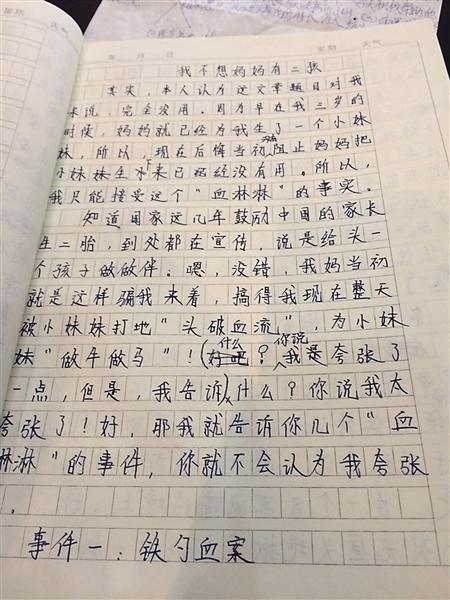 星期 天气
年 月 日 星期 天气
我不想妈妈有二孩
其实，本人认为这文章题目对我
来说，完全没用。因为早在我三岁的
时候，妈妈就已经为我生了一个小妹
妹，所以，现在后悔当初没阻止妈妈把
小妹妹生下来已经没有用。所以，
我只能接受这个“血淋淋”的事实。
知道国家这几年鼓励中国的家长
生二胎，到处都在宣传。说是给头一
个孩子做做伴。嗯，没错，我妈当初
就是这样骗我来着，搞得我现在整天
被小妹妹打地“头破血流”，为小妹
妹“做牛做马”！什么？你说我是夸张了
一点，但是，我告诉什么？你说我太
夸张了！好，那我就告诉你几个“血
淋淋”的事件，你就不会认为我夸张
。
事件一：铁勺血案